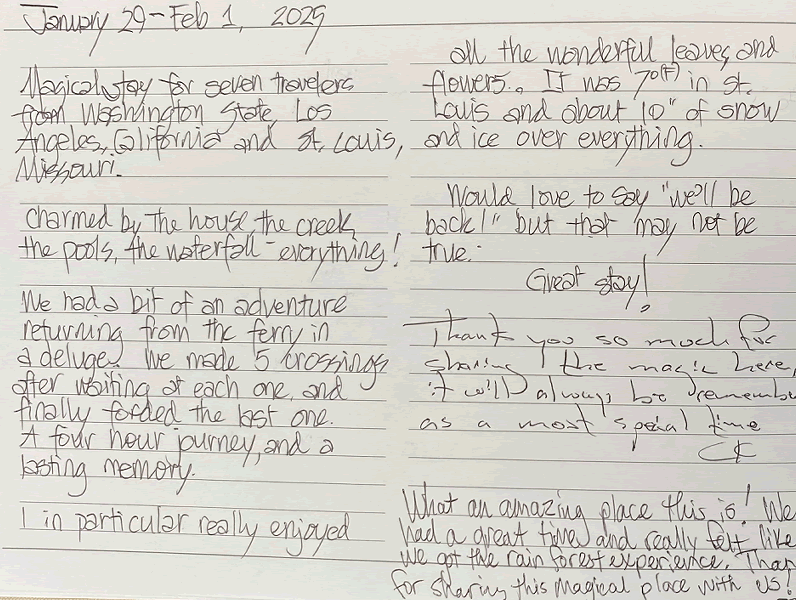 January 29-Feb 1, 2025
Magical stay for seven travelers
from Washington State, Los
Angeles, California and St. Louis,
Missouri.
Charmed by the house, the creek,
the pools, the waterfall - everything!
We had a bit of an adventure
returning from the ferry in
a deluge. We made 5 crossings
after waiting at each one, and
finally forded the last one.
A four hour journey, and a
lasting memory.
I in particular really enjoyed
all the wonderful leaves and
flowers. It was 7°(F) in St.
Louis and about 10" of snow
and ice over everything.
Would love to say "we'll be
back!" but that may not be
true.
Great stay!
Thank you so much for
sharing the magic here,
it will always be remembe
as a most special time
CK
What an amazing place this is! We
had a great time and really felt like
we got the rain forest experience. Than
for sharing this magical place with us!